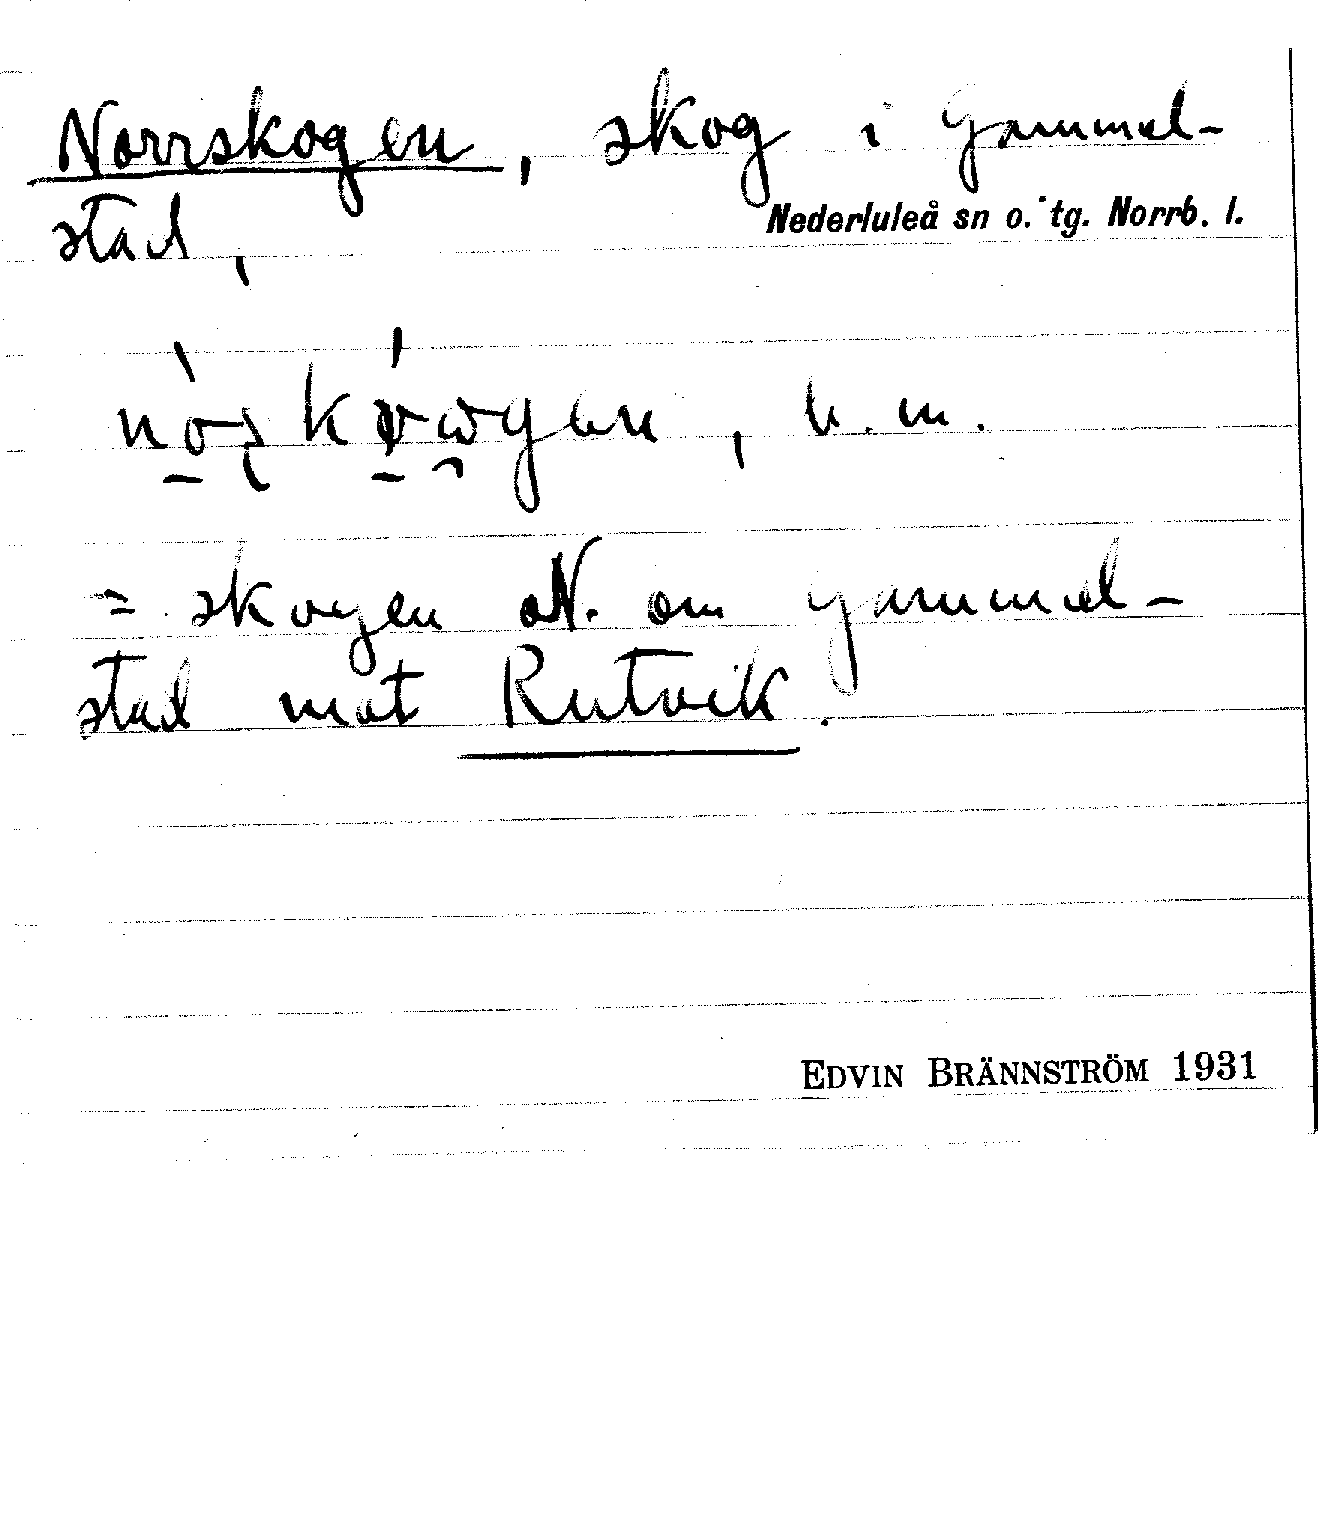 Norrskogen, skog i Gammel-
stad, Nederluleå sn o. tg. Norrb. l.
= skogen N. om Gammel-
stad mot Rutvik.
EDVIN BRÄNNSTRÖM 1931